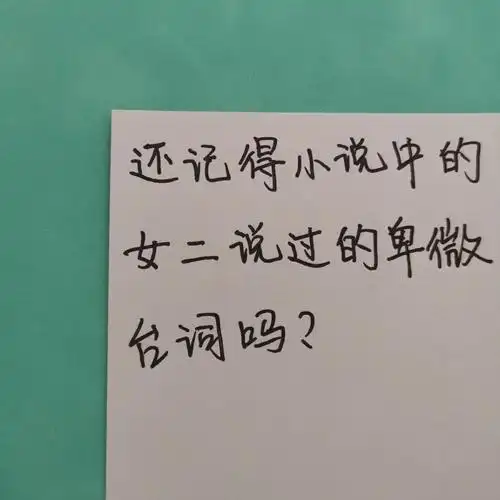 还记得小说中的
女二说过的卑微
台词吗?